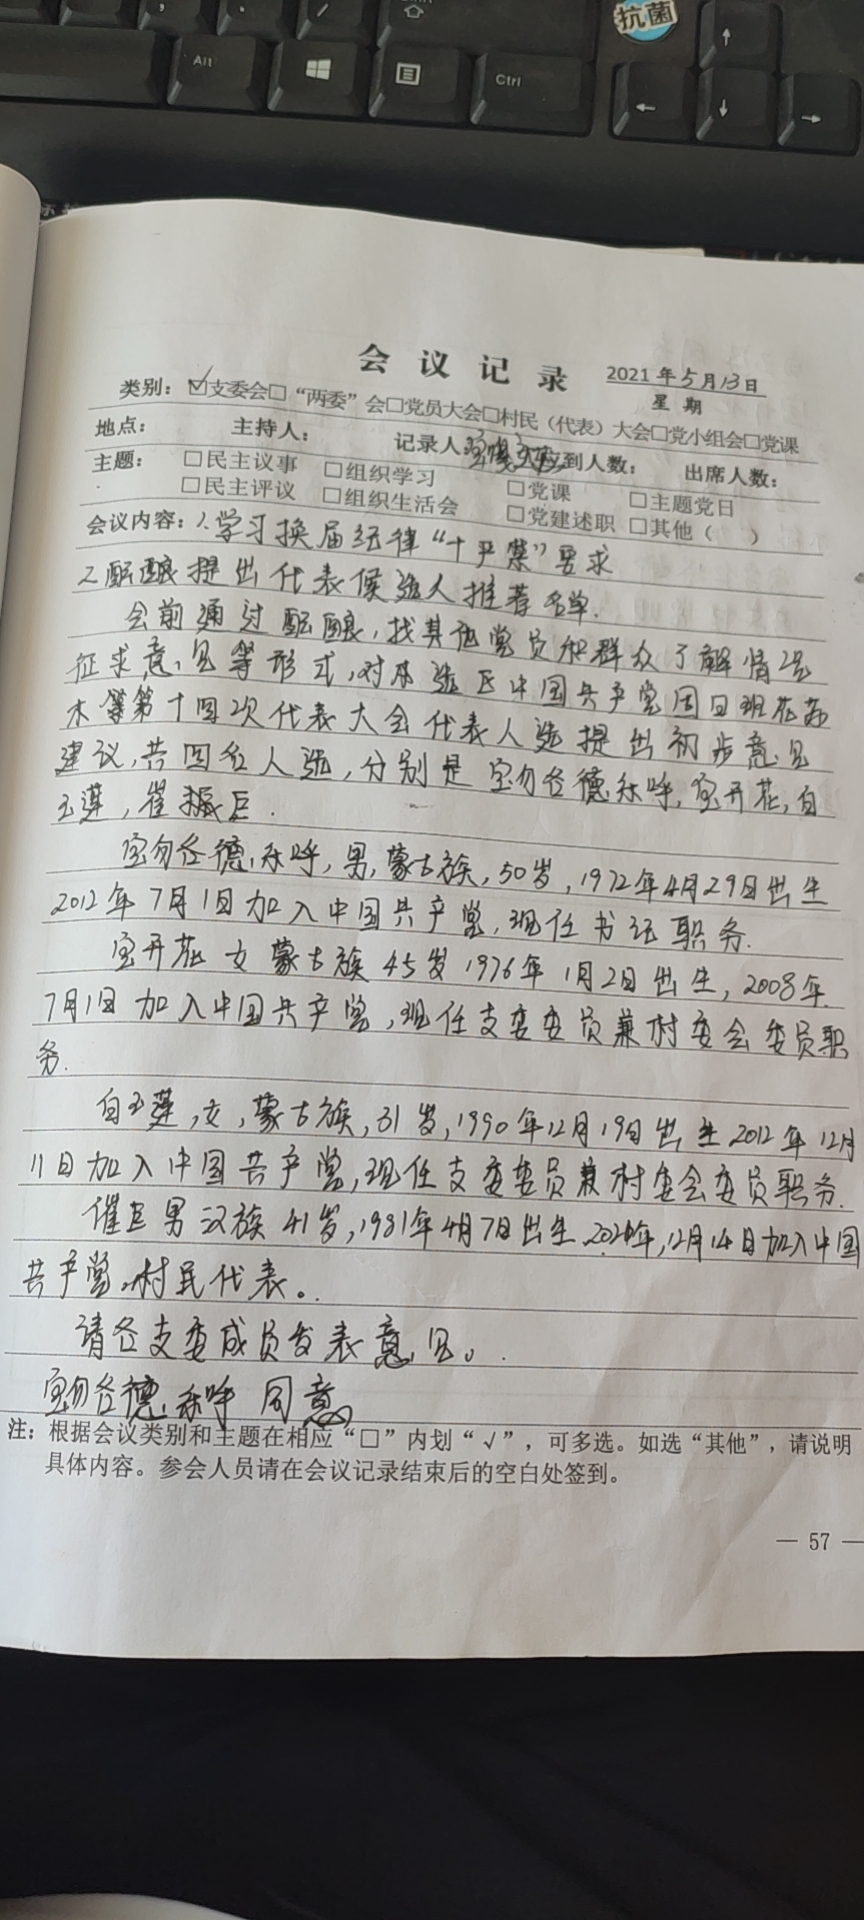 抗菌
Alt
Ctrl
会议记录
2021年5月13日
星期
类别：☑支委会□“两委”会□党员大会□村民（代表）大会□党小组会□党课
地点： 主持人： 记录人 到人数： 出席人数：
主题： □民主议事 □组织学习 □党课 □主题党日
□民主评议 □组织生活会 □党建述职 □其他（ ）
会议内容：1.学习换届纪律“十严禁”要求
2.酝酿提出代表候选人推荐名单.
会前通过酝酿,找其他党员和群众了解情况
征求意见等形式,对本选区中国共产党固日班花苏
木等第十四次代表大会代表人选提出初步意见
建议,共四名人选,分别是宝勿吞德乐呼,宝开花,白
玉莲,崔振巨.
宝勿吞德乐呼,男,蒙古族,50岁,1972年4月29日出生
2012年7月1日加入中国共产党,现任书记职务.
宝开花 女 蒙古族 45岁 1976年1月2日出生,2008年
7月1日加入中国共产党,现任支委委员兼村委会委员职
务.
白玉莲,女,蒙古族,31岁,1990年12月19日出生2012年12月
11日加入中国共产党,现任支委委员兼村委会委员职务.
催巨 男 汉族 41岁,1981年4月7日出生 年,12月14日加入中国
共产党,村民代表。
请各支委成员发表意见。
宝勿吞德乐呼 同意
注：根据会议类别和主题在相应“□”内划“√”，可多选。如选“其他”，请说明
具体内容。参会人员请在会议记录结束后的空白处签到。
— 57 —